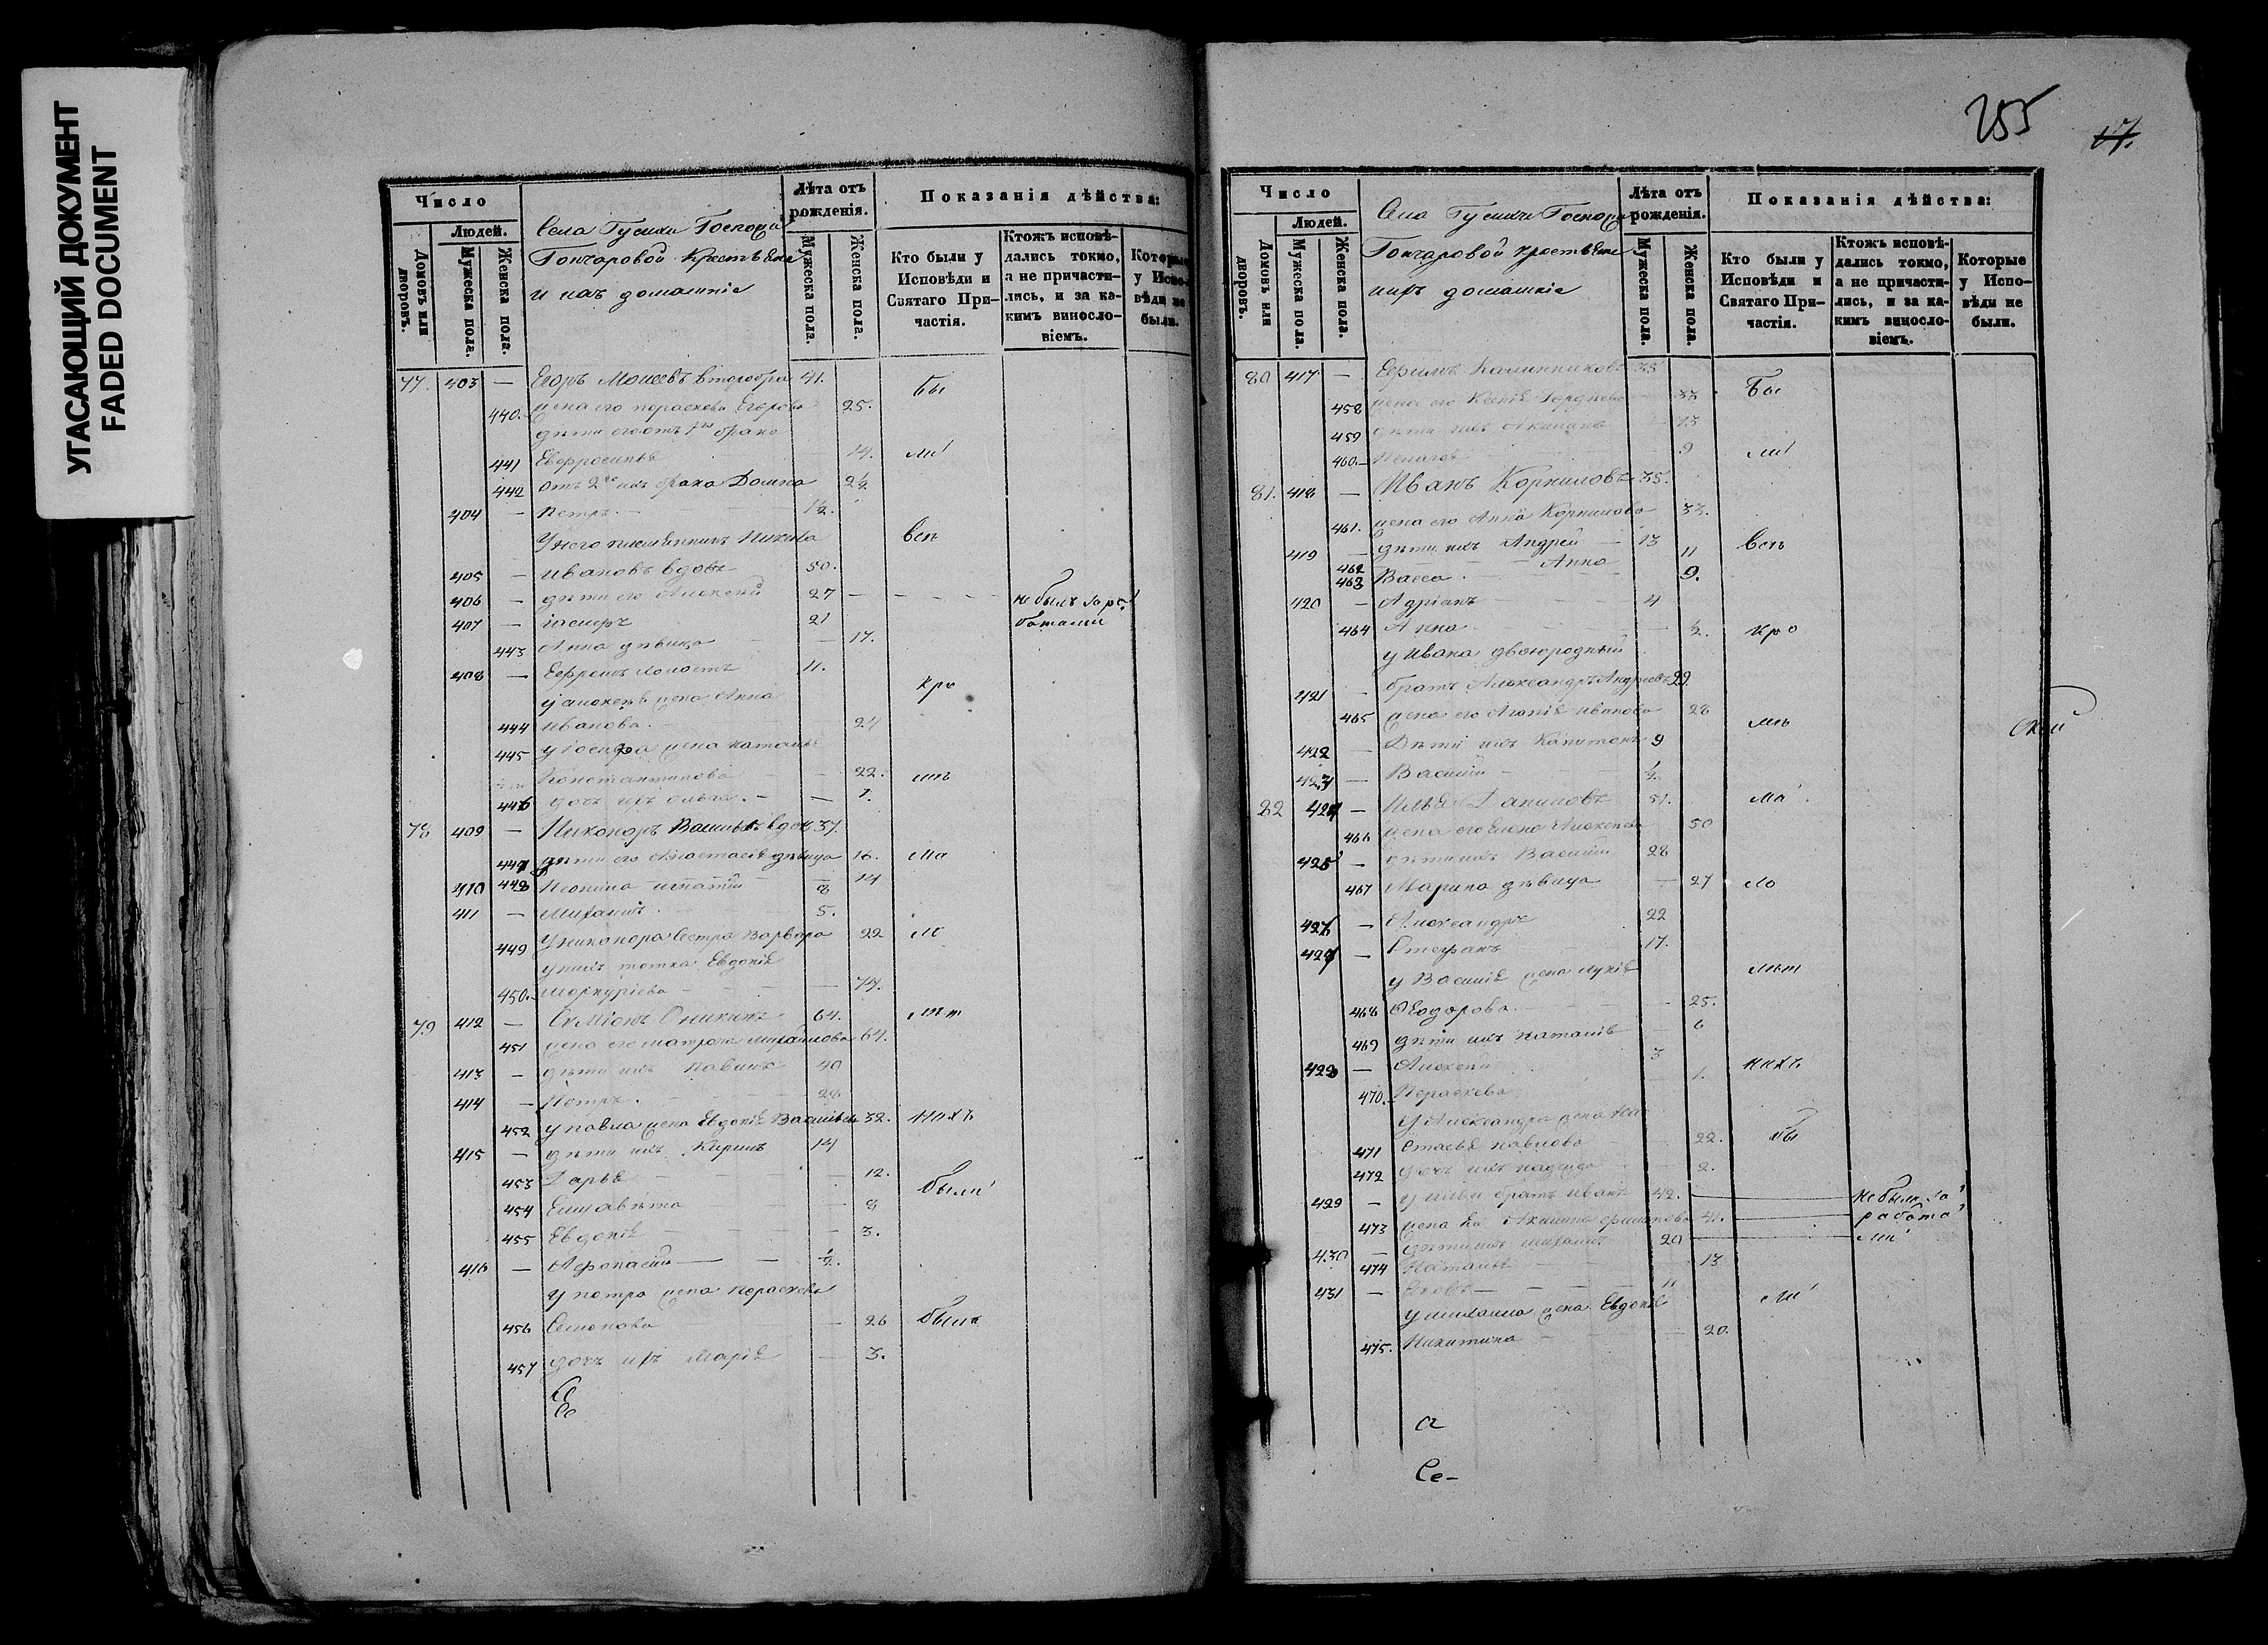 УГАСАЮЩИЙ ДОКУМЕНТ
FADED DOCUMENT
Число
Людей.
Домовъ или дворовъ.
Мужеска пола.
Женска пола.
Села Гусики Госпожи
Гончаровой Крестьяне
и ихъ домашніе
Лѣта отъ рожденія.
Мужеска пола.
Женска пола.
Показанія дѣйства:
Кто были у Исповѣди и Святаго Причастія.
Ктожъ исповѣдались токмо, а не причастились, и за какимъ винословіемъ.
Которые у Исповѣди не были.
77. 403 — Егоръ Моисеевъ второбра 41. Бы
440. жена его параскева Егорова 25.
дѣти его отъ 1го брака
441 Евфросинья 14. ли
442 отъ 2го ихъ брака Домна 2½
404 — Петръ. 1½.
У него племянникъ Никита всѣ
405 — Ивановъ вдовъ 50.
406 — дѣти его Алексѣй 27 не былъ за ра
407 — іосифъ 21 ботами
443 Анна дѣвица 17.
408 — Ефремъ холостъ 11.
у алексѣя жена Анна кро
444 иванова. 24
445 у іосифа жена наталья
Константинова 22. мѣ
446 дочь ихъ ольга. 1.
78 409 — Никоноръ Васильевъ вдов 37.
447 дѣти его Анастасія дѣвица 16. ма
410 448 Неонила игнатій 8 14
411 — Михаилъ. 5.
449 У никонора сестра варвара 22 ло
у нихъ тетка Евдокія
450. меркуріева 74.
79 412 — Симіонъ Оникинъ 64. лѣт
451 жена его матрона михайлова 64.
413 — дѣти ихъ павелъ 40
414 — Петръ. 28
452 у павла жена Евдокія Васильева 32. нихъ
415 — дѣти ихъ Кирилъ 14
453 Дарья 12.
454 Елизавѣта 8 были
455 Евдокія 3.
416 — Афонасій ½.
у петра жена параскева
456 Семенова 26 были
457 дочь ихъ Марія 3.
Се
255
17.
Число
Людей.
Домовъ или дворовъ.
Мужеска пола.
Женска пола.
Села Гусики Госпожи
Гончаровой крестьяне
ихъ домашніе
Лѣта отъ рожденія.
Мужеска пола.
Женска пола.
Показанія дѣйства:
Кто были у Исповѣди и Святаго Причастія.
Ктожъ исповѣдались токмо, а не причастились, и за какимъ винословіемъ.
Которые у Исповѣди не были.
80 417 — Ефимъ Калинниковъ 35 Бы
458 жена его Ксенія 33
459 дѣти ихъ Акилина 13
460. Пелагея 9 ли
81. 418 — Иванъ Корниловъ 35.
461. жена его Анна Корнилова 33.
419 — дѣти ихъ Андрей 13 всѣ
462 Анна 11
463 Васса. 9.
420 — Адріанъ 4
464 Анна ½. кро
у Ивана двоюродный
421 — братъ Александръ Андреевъ 29.
465 жена его Агапія иванова 28 мѣ
422 — Дѣти ихъ Капитонъ 9
423 — Василій ½.
82 424 — Илья Даниловъ 51. ма
466 жена его Елена Алексѣева 50
425 — дѣти ихъ Василій 28
467 Марина дѣвица 27 ло
426 — Александръ 22
427 — Стефанъ 17.
у Василія жена лукія лѣт
468 Феодорова. 25.
469 дѣти ихъ наталія 6
428 — Алексѣй 3 нихъ
470. Параскева 1.
У Александра жена Ана
471 стасья павлова 22. бы
472 дочь ихъ надежда 2.
429 — у ильи братъ иванъ 42. не были за
473 жена Акилина 41. работа
430 — дѣти ихъ михаилъ 20 ми
474 Наталья 13
431 — Яковъ 11
у михаила жена Евдокія ли
475. Никитина 20.
Се-